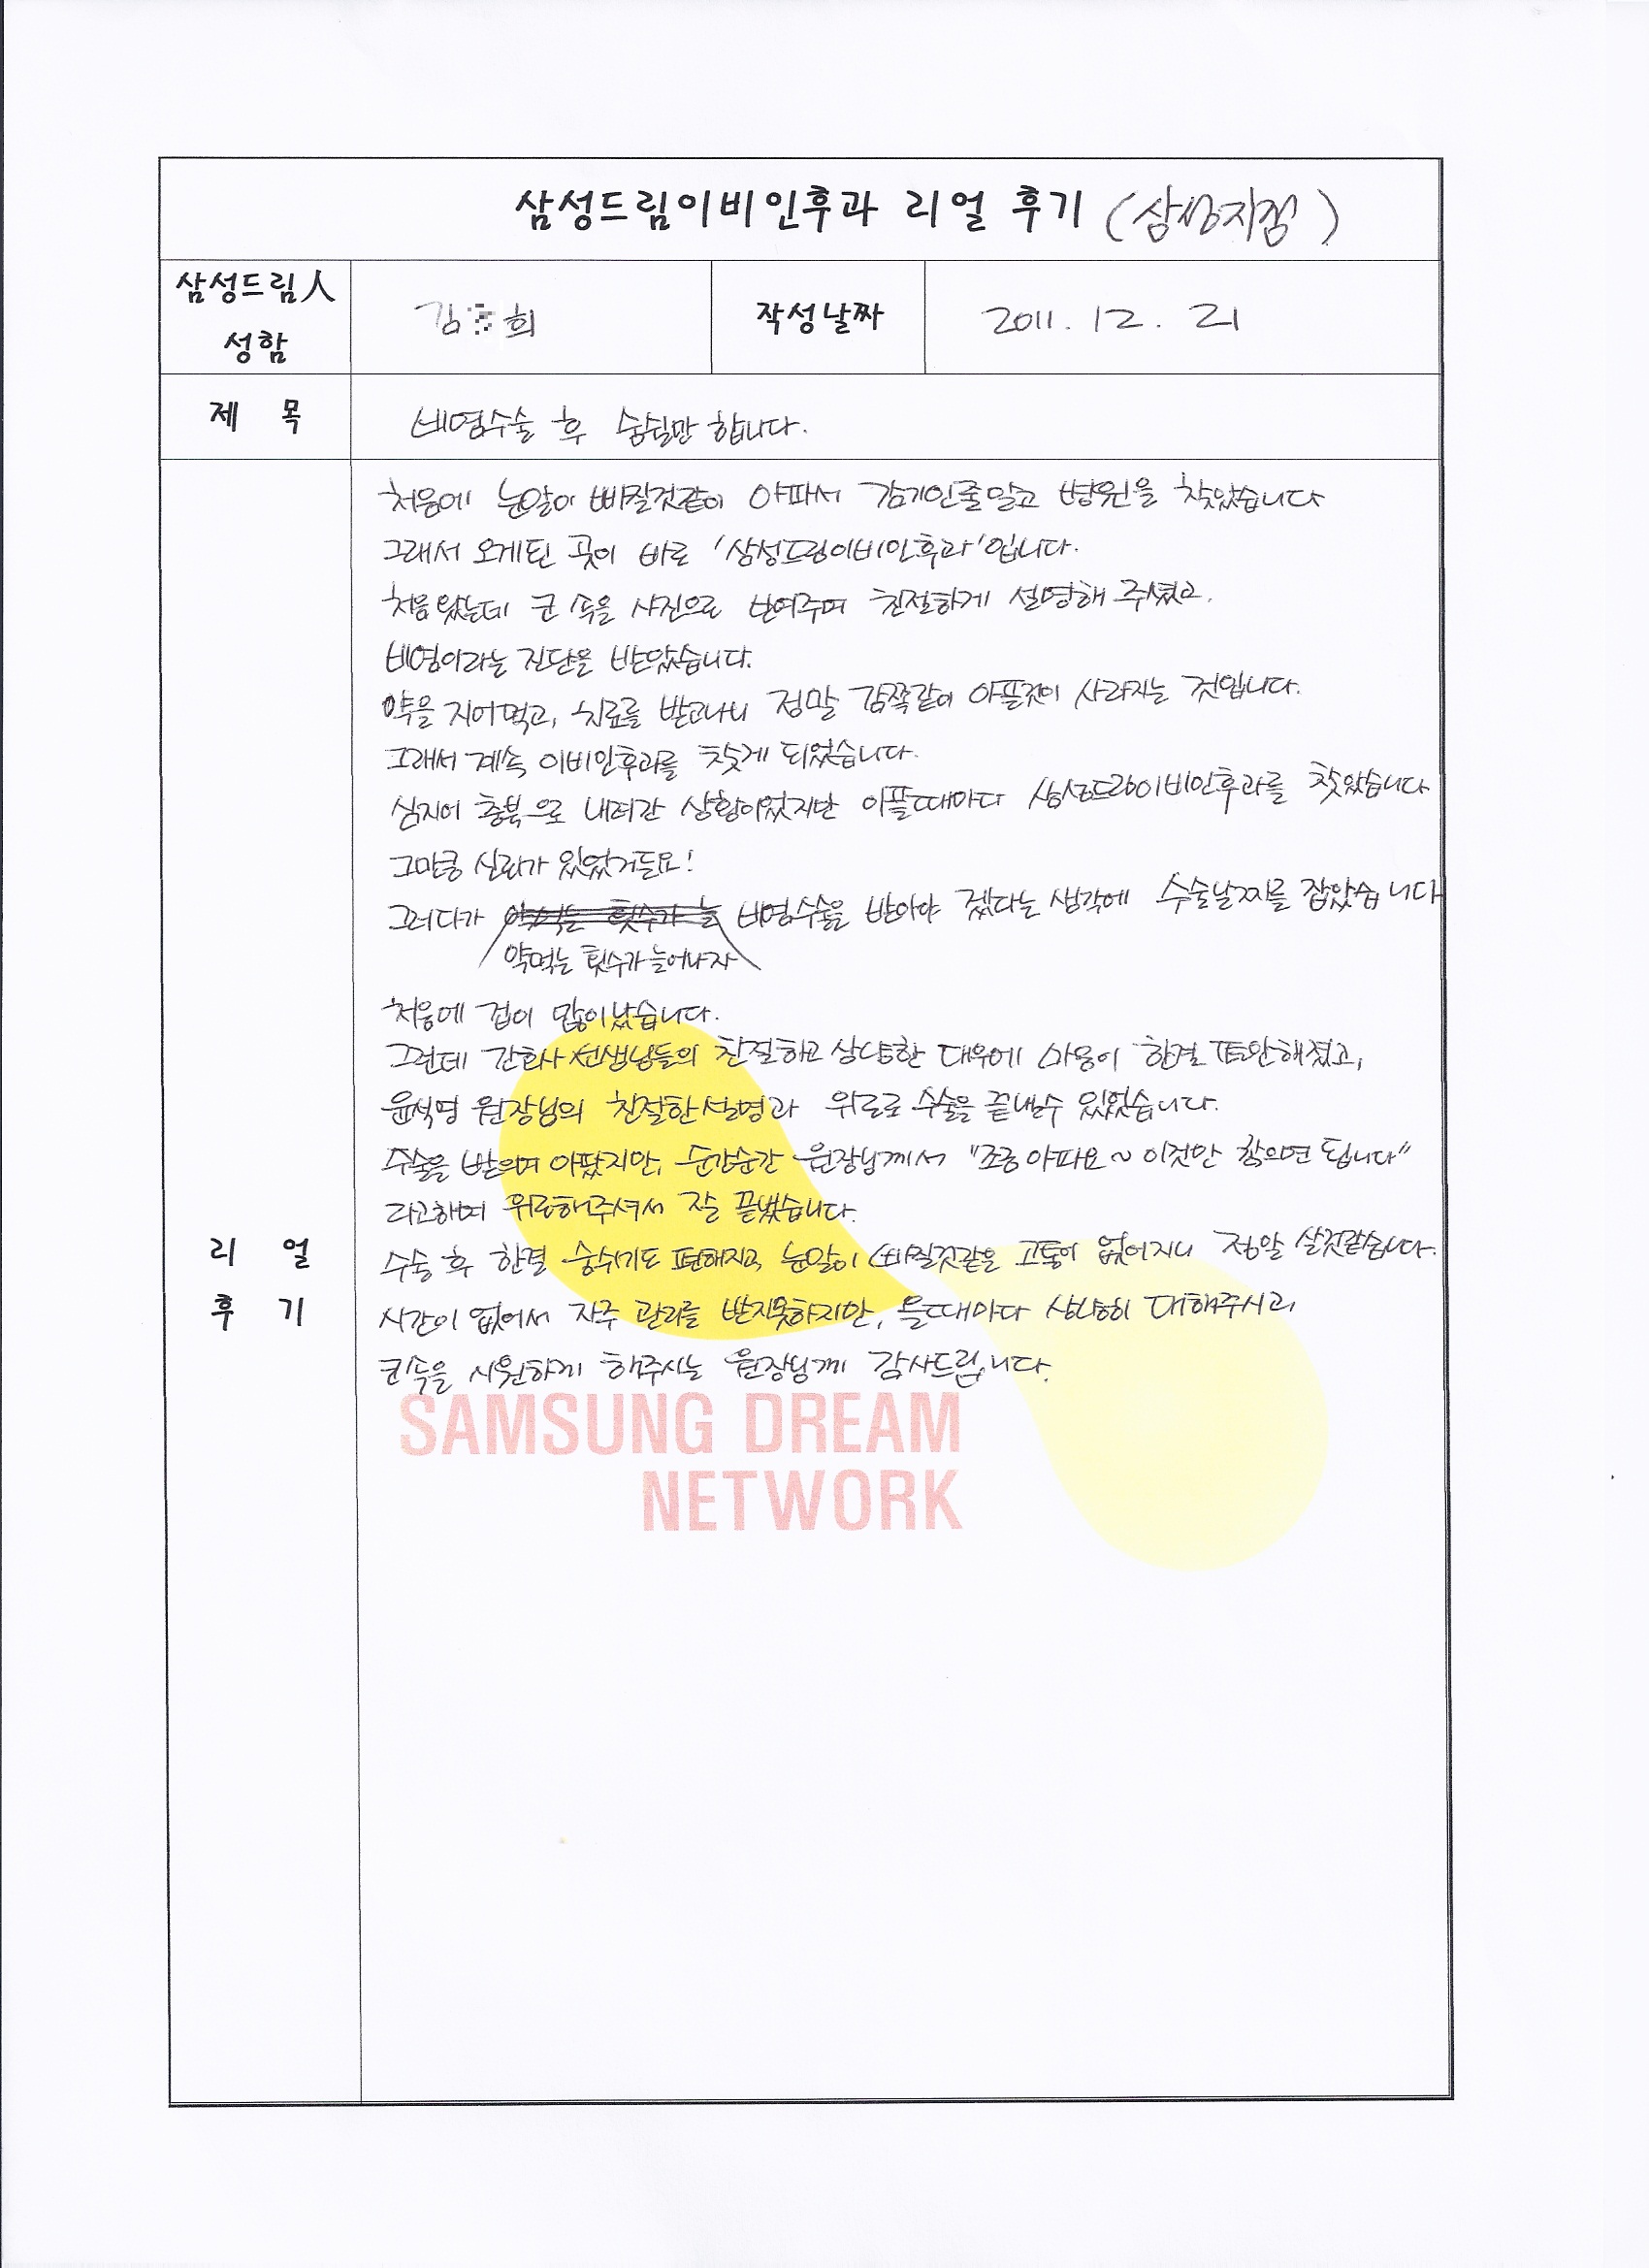 삼성드림이비인후과 리얼 후기 (삼성지점)
삼성드림人
성함
김 희
작성날짜
2011. 12. 21
제 목
비염수술 후 숨쉴만 합니다.
처음에 눈알이 빠질것같이 아파서 감기인줄알고 병원을 찾았습니다
그래서 오게된 곳이 바로 '삼성드림이비인후과'입니다.
처음왔는데 코 속을 사진으로 보여주며 친절하게 설명해 주셨고.
비염이라는 진단을 받았습니다.
약을 지어먹고, 치료를 받고나니 정말 감쪽같이 아플것이 사라지는 것입니다.
그래서 계속 이비인후과를 찾게 되었습니다.
심지어 충북으로 내려간 상황이었지만 아플때마다 삼성드림이비인후과를 찾았습니다
그만큼 신뢰가 있었거든요!
그러다가 약먹는 횟수가 늘 비염수술을 받아야 겠다는 생각에 수술날짜를 잡았습니다
약먹는 횟수가 늘어나자
처음에 겁이 많이났습니다.
그런데 간호사 선생님들의 친절하고 상냥한 대우에 마음이 한결 편안해졌고,
윤식명 원장님의 친절한 설명과 위로로 수술을 끝낼수 있었습니다.
수술을 받으며 아팠지만, 순간순간 원장님께서 "조금 아파요~ 이것만 참으면 됩니다"
라고하며 위로해주셔서 잘 끝냈습니다.
수술 후 한결 숨쉬기도 편해지고, 눈알이 빠질것같은 고통이 없어지니 정말 살것같습니다.
시간이 없어서 자주 관리를 받지못하지만, 올때마다 상냥히 대해주시고,
코속을 시원하게 해주시는 원장님께 감사드립니다.
리 얼
후 기
SAMSUNG DREAM
NETWORK